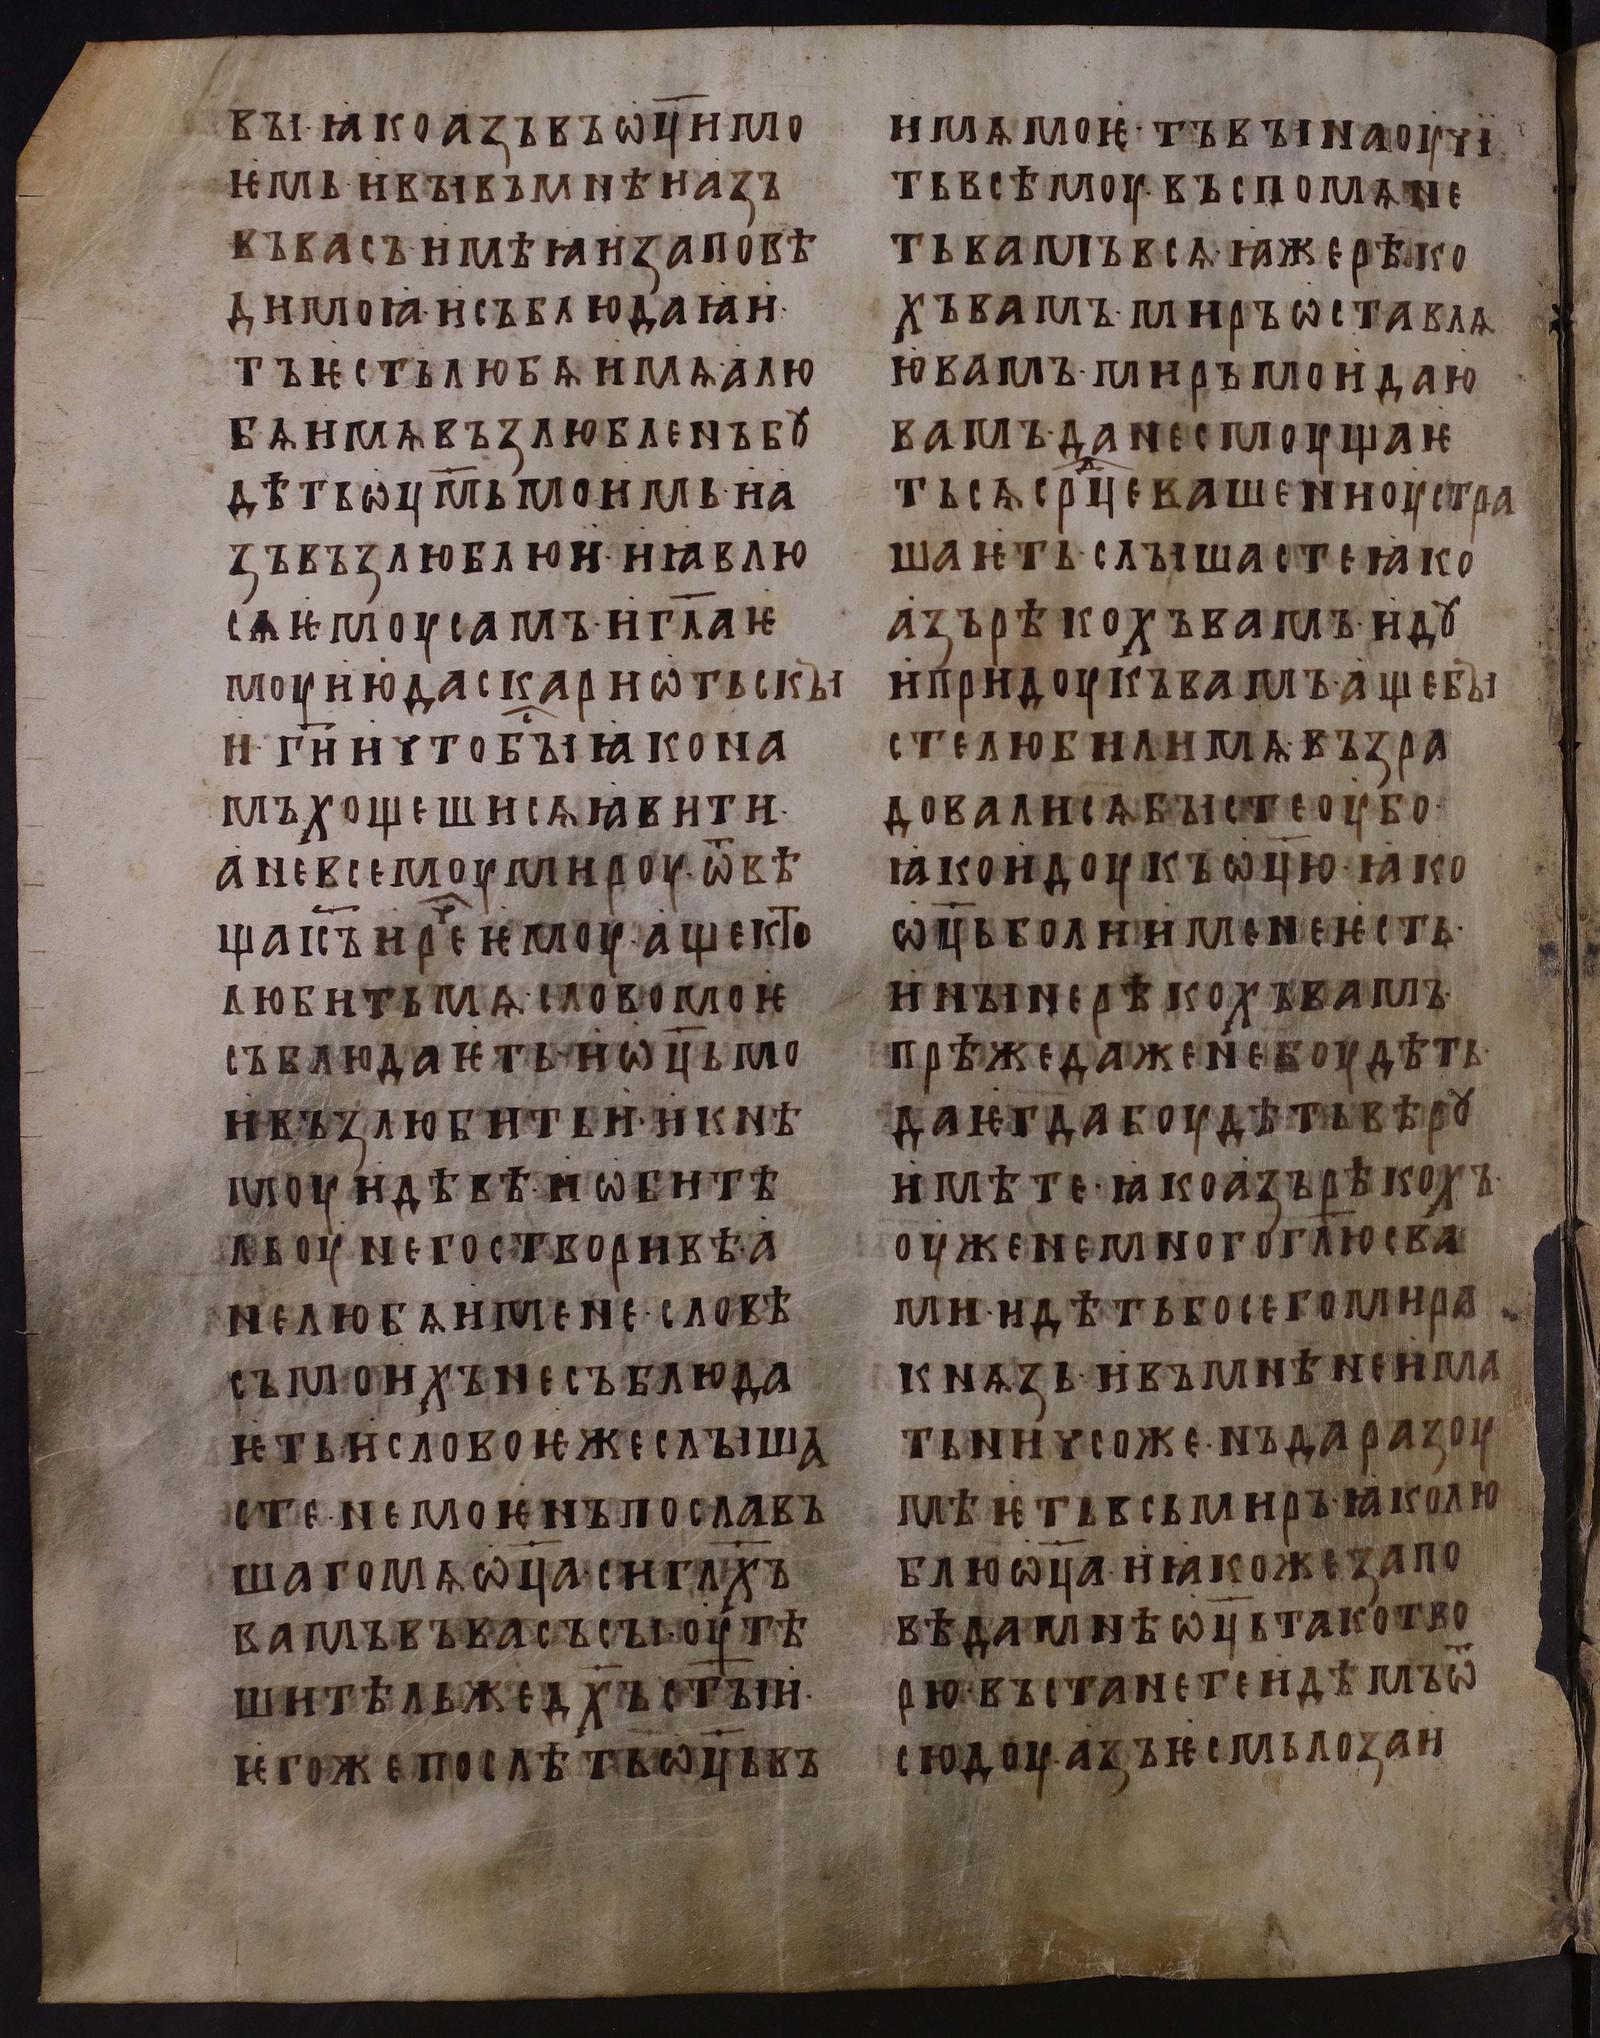 вꙑ· ꙗко азъ въ ѡц҃и мо
ѥмь· и вꙑ въ мнѣ и азъ
въ васъ· имѣꙗи заповѣ
ди моꙗ· и съблюдаꙗи·
тъ ѥсть любѧи мѧ· а лю
бѧи мѧ възлюбленъ бꙋ
дѣть ѡц҃мь моимь· и а
зъ възлюблю и· и ꙗвлю
сѧ ѥмоу самъ· и гл҃а ѥ
моу июда скариѡтьскꙑ
и· г҃и и что бꙑⷭ ꙗко на
мъ хощеши сѧ ꙗвити·
а не всемоу мироу· ѿвѣ
ща і҃съ и рⷱе ѥмоу· аще кто
любить мѧ· слово моѥ
съблюдаѥть· и ѡц҃ь мо
и възлюбить и· и к нѣ
моу идѣвѣ· и ѡбитѣ
ль оу него створивѣ· а
не любѧи мене· словѣ
съ моихъ не съблюда
ѥть· и слово ѥже слꙑша
сте· не моѥ нъ пославъ
шаго мѧ ѡц҃а· си гл҃хъ
вамъ въ васъ сꙑ· оутѣ
шитѣль же дх҃ъ ст҃ꙑи·
ѥгоже послѣть ѡц҃ь въ
имѧ моѥ· тъ вꙑ наоучі
ть всѣмоу· въспомѧне
ть вамъ всѧ· ꙗже рѣко
хъ вамъ· миръ ѡставлѧ
ю вамъ· миръ мои даю
вамъ· да не смоущаѥ
ть сѧ срⷣце ваше ни оустра
шаѥть· слꙑшасте ꙗко
азъ рѣкохъ вамъ· идꙋ
и придоу къ вамъ· аще бꙑ
сте любили мѧ· възра
довали сѧ бꙑсте оубо·
ꙗко идоу къ ѡц҃ю· ꙗко
ѡц҃ь болии мене ѥсть·
и нꙑне рѣкохъ вамъ·
прѣже даже не боудѣть·
да ѥгда боудѣть вѣрꙋ
имѣте· ꙗко азъ рѣкохъ·
оуже не много гл҃ю с ва
ми· идѣть бо сего мира
кнѧзь· и въ мнѣ не има
ть ничсоже· нъ да разоу
мѣѥть всь миръ· ꙗко лю
блю ѡц҃а· и ꙗкоже запо
вѣда мнѣ ѡц҃ь тако тво
рю· въстанете идѣмъ ѿ
сюдоу· азъ ѥсмь лоза и